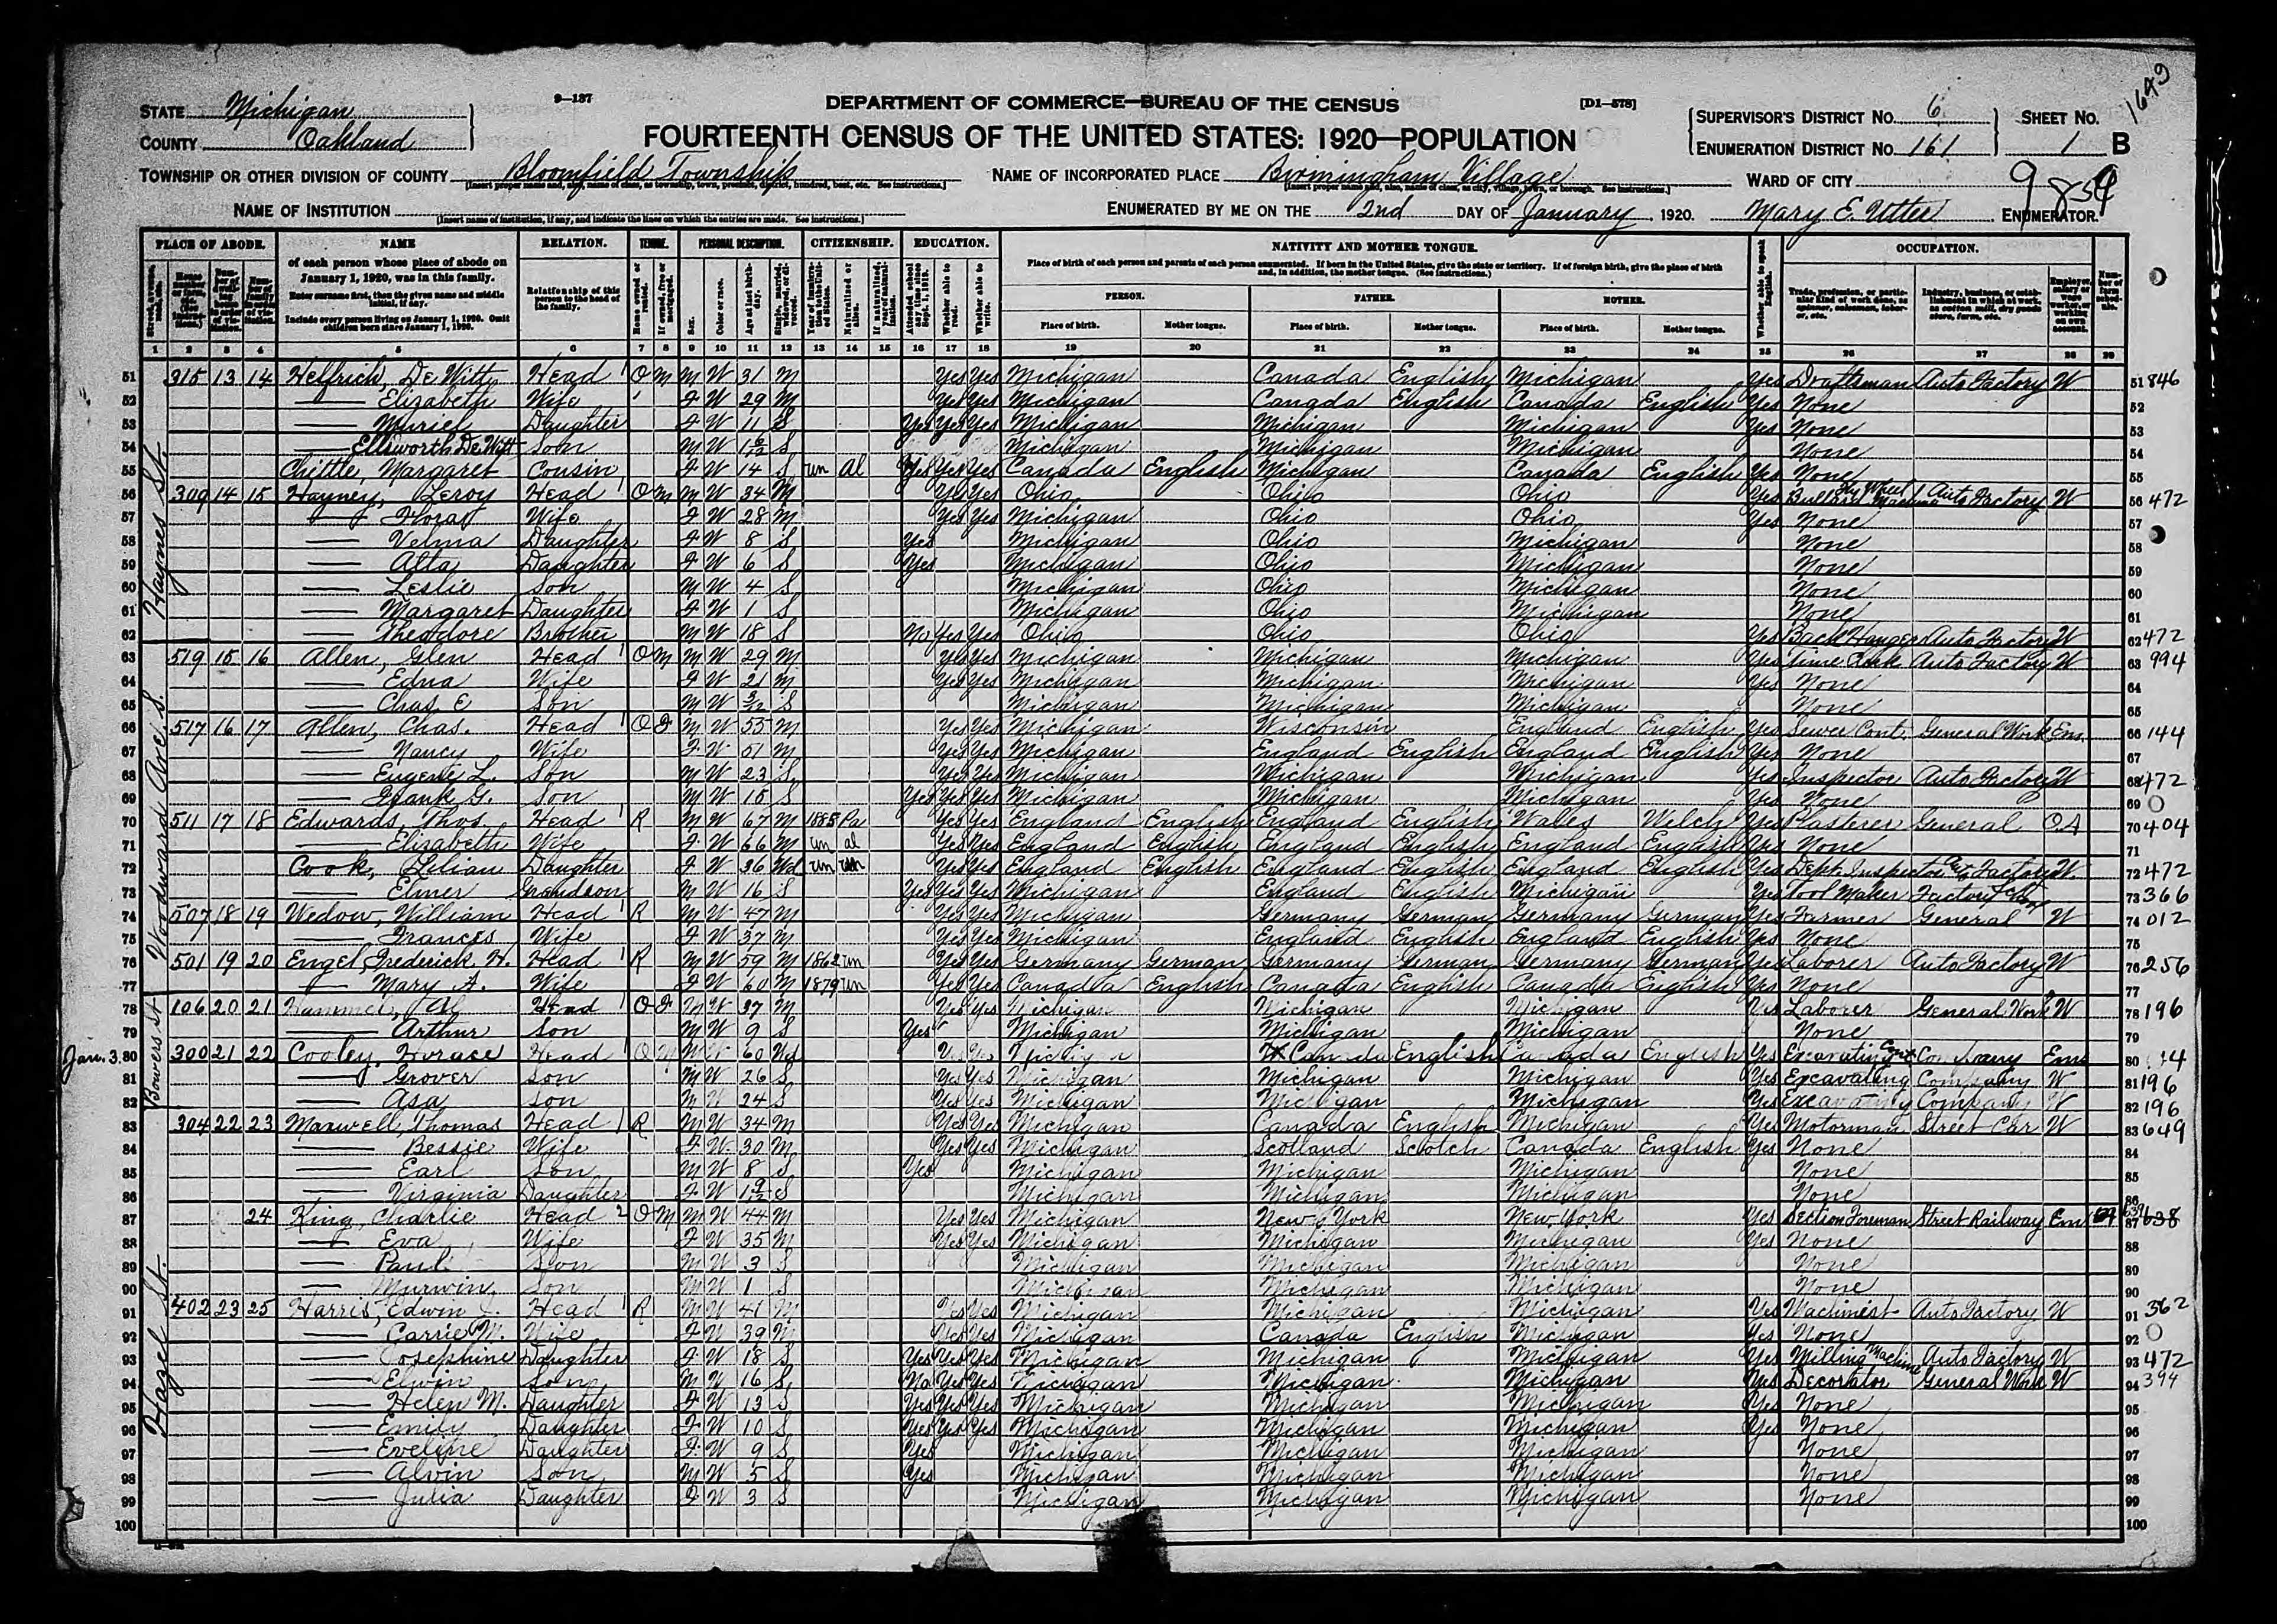 1649
STATE Michigan
9—137
DEPARTMENT OF COMMERCE—BUREAU OF THE CENSUS
[D1—578]
SUPERVISOR'S DISTRICT NO. 6
SHEET NO.
COUNTY Oakland
FOURTEENTH CENSUS OF THE UNITED STATES: 1920—POPULATION
ENUMERATION DISTRICT NO. 161
1 B
TOWNSHIP OR OTHER DIVISION OF COUNTY Bloomfield Township
NAME OF INCORPORATED PLACE Birmingham Village
WARD OF CITY
NAME OF INSTITUTION
ENUMERATED BY ME ON THE 2nd DAY OF January, 1920. Mary E. Utter ENUMERATOR.
PLACE OF ABODE. NAME RELATION. TENURE. PERSONAL DESCRIPTION. CITIZENSHIP. EDUCATION. NATIVITY AND MOTHER TONGUE. OCCUPATION.
of each person whose place of abode on January 1, 1920, was in this family.
Enter surname first, then the given name and middle initial, if any.
Include every person living on January 1, 1920. Omit children born since January 1, 1920.
Relationship of this person to the head of the family.
Place of birth of each person and parents of each person enumerated. If born in the United States, give the state or territory. If of foreign birth, give the place of birth and, in addition, the mother tongue. (See instructions.)
PERSON. FATHER. MOTHER.
Place of birth. Mother tongue. Place of birth. Mother tongue. Place of birth. Mother tongue.
1 2 3 4 5 6 7 8 9 10 11 12 13 14 15 16 17 18 19 20 21 22 23 24 25 26 27 28 29
Haynes St.
51 315 13 14 Helfrich, De Witt Head 1 O M M W 31 M Yes Yes Michigan Canada English Michigan Yes Draftsman Auto Factory W 51 846
52 — Elizabeth Wife F W 29 M Yes Yes Michigan Canada English Canada English Yes None 52
53 — Muriel Daughter F W 11 S Yes Yes Yes Michigan Michigan Michigan Yes None 53
54 — Ellsworth De Witt Son M W S Michigan Michigan Michigan None 54
55 Chittle, Margaret Cousin F W 14 S un Al Yes Yes Yes Canada English Michigan Canada English Yes None 55
56 309 14 15 Hayney, Leroy Head 1 O M M W 34 M Yes Yes Ohio Ohio Ohio Yes Auto Factory W 56 472
57 — Flora Wife F W 28 M Yes Yes Michigan Ohio Ohio Yes None 57
58 — Velma Daughter F W 8 S Yes Michigan Ohio Michigan None 58
59 — Alta Daughter F W 6 S Yes Michigan Ohio Michigan None 59
60 — Leslie Son M W 4 S Michigan Ohio Michigan None 60
61 — Margaret Daughter F W 1 S Michigan Ohio Michigan None 61
62 — Theodore Brother M W 18 S No Yes Yes Ohio Ohio Ohio Yes Back Hanger Auto Factory W 62 472
Woodward Ave. S.
63 519 15 16 Allen, Glen Head 1 O M M W 29 M Yes Yes Michigan Michigan Michigan Yes Time Clerk Auto Factory W 63 994
64 — Edna Wife F W 21 M Yes Yes Michigan Michigan Michigan Yes None 64
65 — Chas. E Son M W 3/12 S Michigan Michigan Michigan None 65
66 517 16 17 Allen, Chas. Head 1 O F M W 55 M Yes Yes Michigan Wisconsin England English Yes Sewer Cont. General Work Em. 66 144
67 — Nancy Wife F W 51 M Yes Yes Michigan England English England English Yes None 67
68 — Eugene L. Son M W 23 S Yes Yes Michigan Michigan Michigan Yes Inspector Auto Factory W 68 472
69 — Frank G. Son M W 15 S Yes Yes Yes Michigan Michigan Michigan Yes None 69 0
70 511 17 18 Edwards, Thos. Head 1 R M W 67 M 1885 Pa Yes Yes England English England English Wales Welch Yes Plasterer General OA 70 404
71 — Elizabeth Wife F W 66 M un al Yes Yes England English England English England English Yes None 71
72 Cook, Lilian Daughter F W 36 Wd un un Yes Yes England English England English England English Yes Dept. Inspector Auto Factory W 72 472
73 — Elmer Grandson M W 16 S Yes Yes Yes Michigan England English Michigan Yes Tool Maker Factory 73 366
74 507 18 19 Wedow, William Head 1 R M W 47 M Yes Yes Michigan Germany German Germany German Yes Farmer General W 74 012
75 — Frances Wife F W 37 M Yes Yes Michigan England English England English Yes None 75
76 501 19 20 Engel, Frederick H. Head 1 R M W 59 M 1862 un Yes Yes Germany German Germany German Germany German Yes Laborer Auto Factory W 76 256
77 — Mary A. Wife F W 60 M 1879 un Yes Yes Canada English Canada English Canada English Yes None 77
Bowers St.
78 106 20 21 Al Head 1 O F M W 37 M Yes Yes Michigan Michigan Michigan Yes Laborer General Work W 78 196
79 — Arthur Son M W 9 S Yes Michigan Michigan Michigan None 79
Jan. 3. 80 300 21 22 Cooley, Horace Head 1 O M M W 60 Wd Yes Yes Michigan Canada English Canada English Yes Excavating Cont. Company Em 80
81 — Grover Son M W 26 S Yes Yes Michigan Michigan Michigan Yes Excavating Company W 81 196
82 — Asa Son M W 24 S Yes Yes Michigan Michigan Michigan Yes Excavating Company W 82 196
Hazel St.
83 304 22 23 Maxwell, Thomas Head 1 R M W 34 M Yes Yes Michigan Canada English Michigan Yes Motorman Street Car W 83 649
84 — Bessie Wife F W 30 M Yes Yes Michigan Scotland Scotch Canada English Yes None 84
85 — Earl Son M W 8 S Yes Michigan Michigan Michigan None 85
86 — Virginia Daughter F W 1 9/12 S Michigan Michigan Michigan None 86
87 24 King, Charlie Head 2 O M M W 44 M Yes Yes Michigan New York New York Yes Section Foreman Street Railway Em 87 638
88 — Eva Wife F W 35 M Yes Yes Michigan Michigan Michigan Yes None 88
89 — Paul Son M W 3 S Michigan Michigan Michigan None 89
90 — Murwin Son M W 1 S Michigan Michigan Michigan None 90
91 402 23 25 Harris, Edwin J. Head 1 R M W 41 M Yes Yes Michigan Michigan Michigan Yes Machinist Auto Factory W 91 362
92 — Carrie M. Wife F W 39 M Yes Yes Michigan Canada English Michigan Yes None 92 0
93 — Josephine Daughter F W 18 S Yes Yes Yes Michigan Michigan Michigan Yes Milling Machine Auto Factory W 93 472
94 — Elwin Son M W 16 S No Yes Yes Michigan Michigan Michigan Yes Decortator General Work W 94 394
95 — Helen M. Daughter F W 13 S Yes Yes Yes Michigan Michigan Michigan Yes None 95
96 — Emily Daughter F W 10 S Yes Yes Yes Michigan Michigan Michigan Yes None 96
97 — Eveline Daughter F W 9 S Yes Michigan Michigan Michigan None 97
98 — Alvin Son M W 5 S Yes Michigan Michigan Michigan None 98
99 — Julia Daughter F W 3 S Michigan Michigan Michigan None 99
100 100